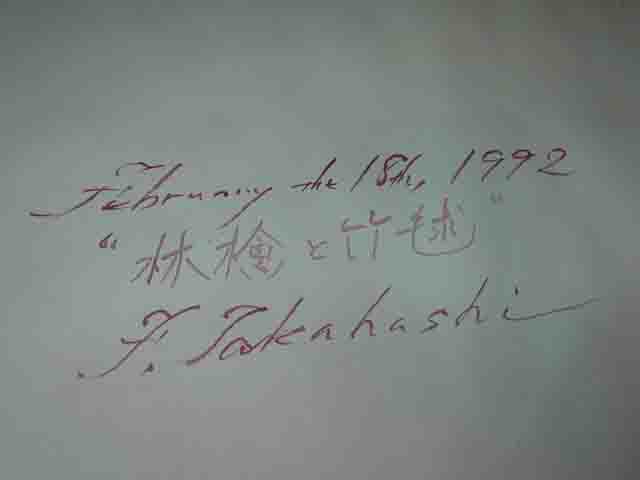 February the 18th, 1992
“林檎と竹毬”
F. Takahashi